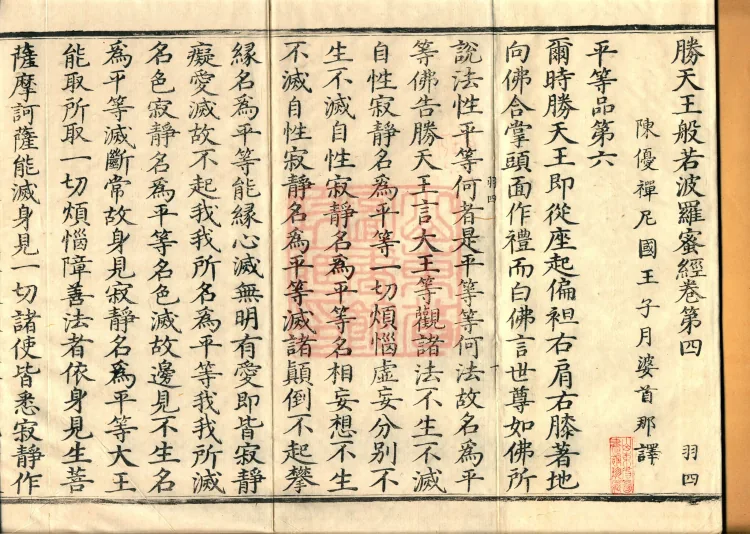 勝天王般若波羅蜜經卷第四 羽四
陳優禪尼國王子月婆首那譯
平等品第六
爾時勝天王即從座起偏袒右肩右膝著地
向佛合掌頭面作禮而白佛言世尊如佛所
說法性平等何者是平等等何法故名為平
羽四 一
等佛告勝天王言大王等觀諸法不生不滅
自性寂靜名為平等一切煩惱虛妄分別不
生不滅自性寂靜名為平等名相妄想不生
不滅自性寂靜名為平等滅諸顛倒不起攀
緣名為平等能緣心滅無明有愛即皆寂靜
癡愛滅故不起我我所名為平等我我所滅
名色寂靜名為平等名色滅故邊見不生名
為平等滅斷常故身見寂靜名為平等大王
能取所取一切煩惱障善法者依身見生菩
薩摩訶薩能滅身見一切諸使皆悉寂靜作